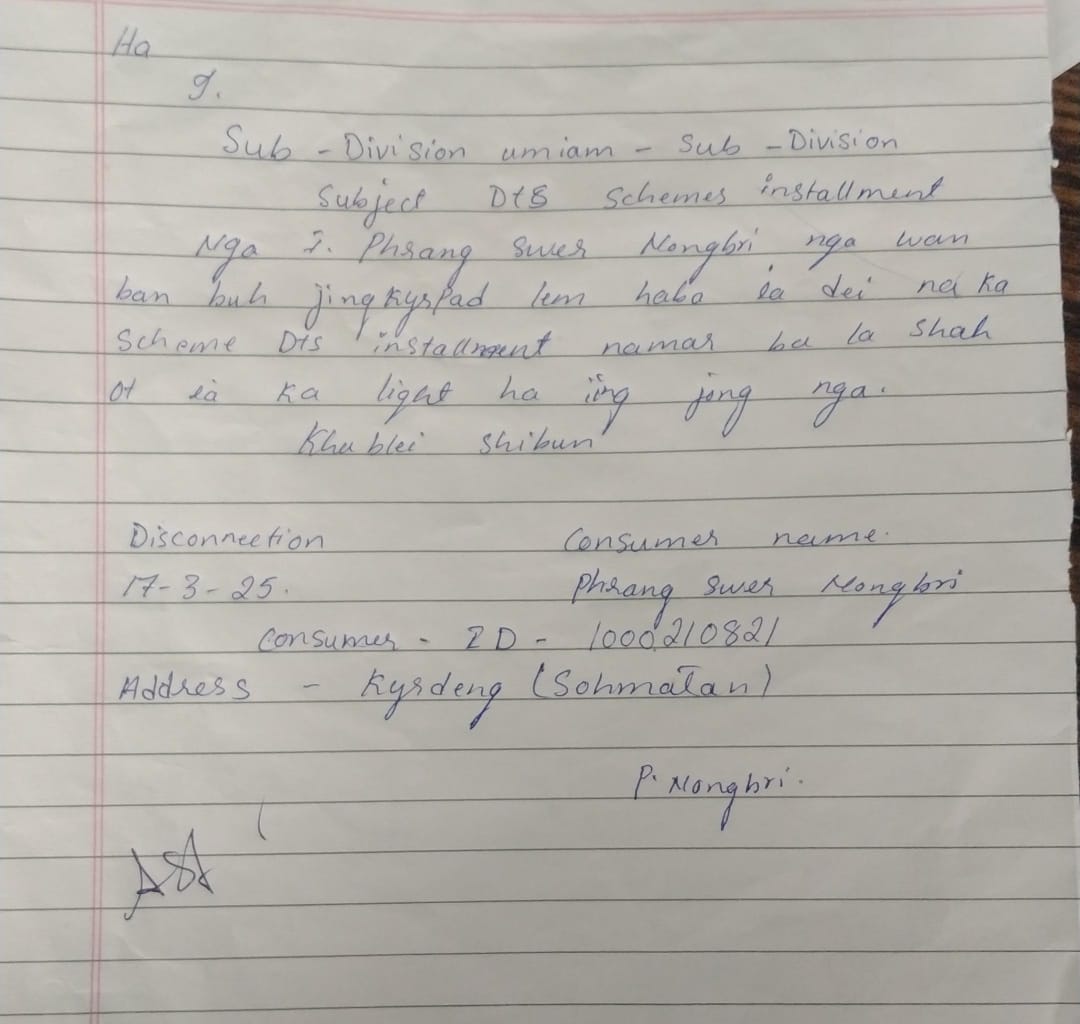 Ha
I.
Sub - Division umiam - Sub - Division
Subject Dts Schemes installment
Nga I. Phrang Swer Nongbri nga wan
ban buh jingkyrpad lem haba ia dei na ka
Scheme Dts installment namar ba la shah
ot ia ka light ha iing jong nga.
Khublei shibun
Disconnection Consumer name.
17-3-25. Phrang Swer Nongbri
Consumer - ID - 1000210821
Address - Kyrdeng (Sohmatan)
P. Nongbri.